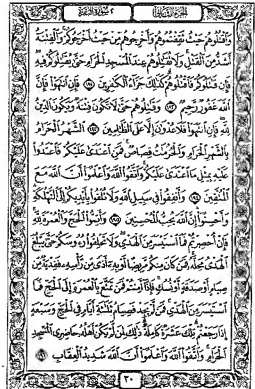 الجزء الثاني ٢ سورة البقرة
وَاقْتُلُوهُمْ حَيْثُ ثَقِفْتُمُوهُمْ وَأَخْرِجُوهُم مِّنْ حَيْثُ أَخْرَجُوكُمْ وَالْفِتْنَةُ
أَشَدُّ مِنَ الْقَتْلِ وَلَا تُقَاتِلُوهُمْ عِندَ الْمَسْجِدِ الْحَرَامِ حَتَّىٰ يُقَاتِلُوكُمْ فِيهِ
فَإِن قَاتَلُوكُمْ فَاقْتُلُوهُمْ كَذَٰلِكَ جَزَاءُ الْكَافِرِينَ ١٩١ فَإِنِ انتَهَوْا فَإِنَّ
اللَّهَ غَفُورٌ رَّحِيمٌ ١٩٢ وَقَاتِلُوهُمْ حَتَّىٰ لَا تَكُونَ فِتْنَةٌ وَيَكُونَ الدِّينُ
لِلَّهِ فَإِنِ انتَهَوْا فَلَا عُدْوَانَ إِلَّا عَلَى الظَّالِمِينَ ١٩٣ الشَّهْرُ الْحَرَامُ
بِالشَّهْرِ الْحَرَامِ وَالْحُرُمَاتُ قِصَاصٌ فَمَنِ اعْتَدَىٰ عَلَيْكُمْ فَاعْتَدُوا
عَلَيْهِ بِمِثْلِ مَا اعْتَدَىٰ عَلَيْكُمْ وَاتَّقُوا اللَّهَ وَاعْلَمُوا أَنَّ اللَّهَ مَعَ
الْمُتَّقِينَ ١٩٤ وَأَنفِقُوا فِي سَبِيلِ اللَّهِ وَلَا تُلْقُوا بِأَيْدِيكُمْ إِلَى التَّهْلُكَةِ
وَأَحْسِنُوا إِنَّ اللَّهَ يُحِبُّ الْمُحْسِنِينَ ١٩٥ وَأَتِمُّوا الْحَجَّ وَالْعُمْرَةَ لِلَّهِ
فَإِنْ أُحْصِرْتُمْ فَمَا اسْتَيْسَرَ مِنَ الْهَدْيِ وَلَا تَحْلِقُوا رُءُوسَكُمْ حَتَّىٰ يَبْلُغَ
الْهَدْيُ مَحِلَّهُ فَمَن كَانَ مِنكُم مَّرِيضًا أَوْ بِهِ أَذًى مِّن رَّأْسِهِ فَفِدْيَةٌ مِّن
صِيَامٍ أَوْ صَدَقَةٍ أَوْ نُسُكٍ فَإِذَا أَمِنتُمْ فَمَن تَمَتَّعَ بِالْعُمْرَةِ إِلَى الْحَجِّ فَمَا
اسْتَيْسَرَ مِنَ الْهَدْيِ فَمَن لَّمْ يَجِدْ فَصِيَامُ ثَلَاثَةِ أَيَّامٍ فِي الْحَجِّ وَسَبْعَةٍ
إِذَا رَجَعْتُمْ تِلْكَ عَشَرَةٌ كَامِلَةٌ ذَٰلِكَ لِمَن لَّمْ يَكُنْ أَهْلُهُ حَاضِرِي الْمَسْجِدِ
الْحَرَامِ وَاتَّقُوا اللَّهَ وَاعْلَمُوا أَنَّ اللَّهَ شَدِيدُ الْعِقَابِ ١٩٦
٣٠